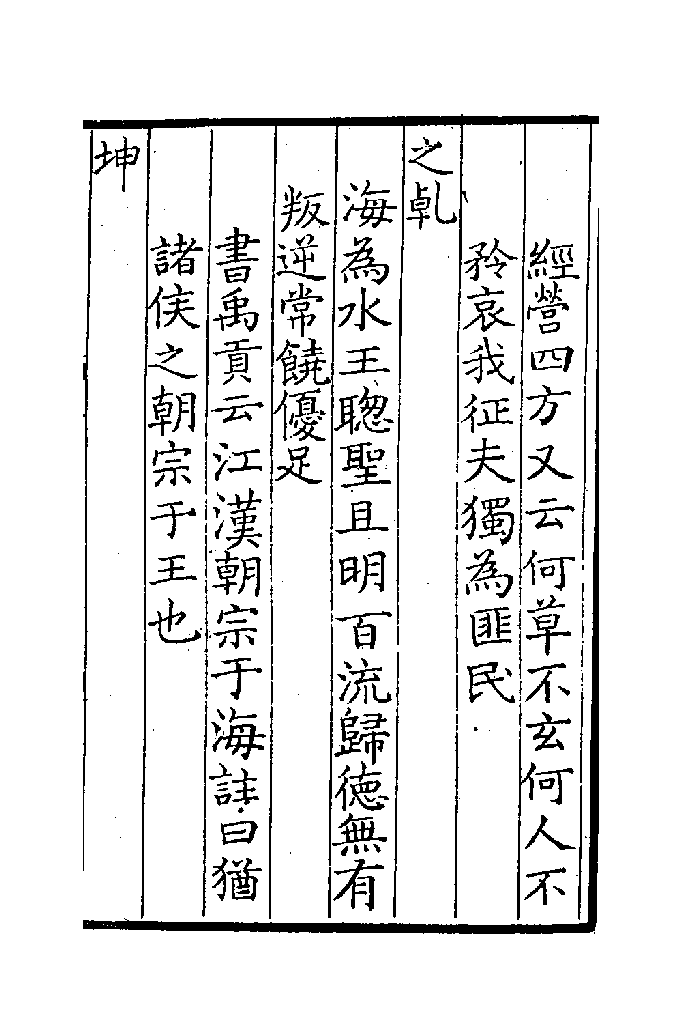 經營四方又云何草不玄何人不
矜哀我征夫獨為匪民
之乹
海為水王聰聖且明百流歸德無有
叛逆常饒優足
書禹貢云江漢朝宗于海註曰猶
諸侯之朝宗于王也
坤